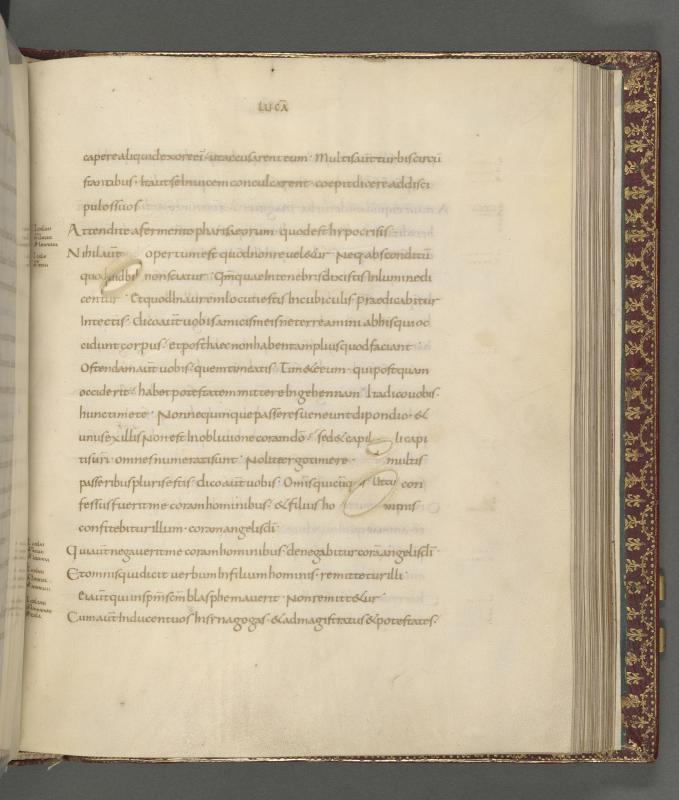 LUCĀ
capere aliquid exoreei· utaccusarent eum· Multisaut̄ turbiscircū
stantibus· Itautseinuicemconculcarent· coepitdicereaddisci
pulossuos·
Attenditeafermentopharisaeorum· quodesthypocrisis·
Nihilaut̄ opertumest quodnonreueletur· Neq; absconditū
quod nonsciatur· Qm̄quaeIntenebrisdixistis Inluminedi
centur· EtquodInauremlocutiestis Incubiculis· praedicabitur
Intectis· dicoaut̄uobisamicismeis neterreamini abhisquioc
cidunt corpus· etposthaecnonhabentampliusquodfaciant
Ostendamaut̄ uobis· quemtimeatis· Timeteeum· quipostquam
occiderit· habetpotestatemmittereIngehennam· Itadicouobis·
hunctimete· Nonnequinquepasseresueneuntdipondio· &
unusexillisNonest Inobliuionecoramdō· sed&capil licapi
tisuri· omnesnumeratisunt· Noliteergotimere· multis
passeribusplurisestis· dicoaut̄uobis· Omīsquicūq; con
fessusfueritmecoramhominibus· &filius ho minis
confitebiturillum· coramangelisdī·
Quiaut̄negaueritmecoramhominibus· denegabiturcorāangelisdī·
Etomnisquidicit uerbumInfiliumhominis· remitteturilli·
eiaut̄quiinspm̄scm̄blasphemauerit· Nonremittetur·
Cumaut̄InducentuosInsynagogas· &admagistratus&potestates·